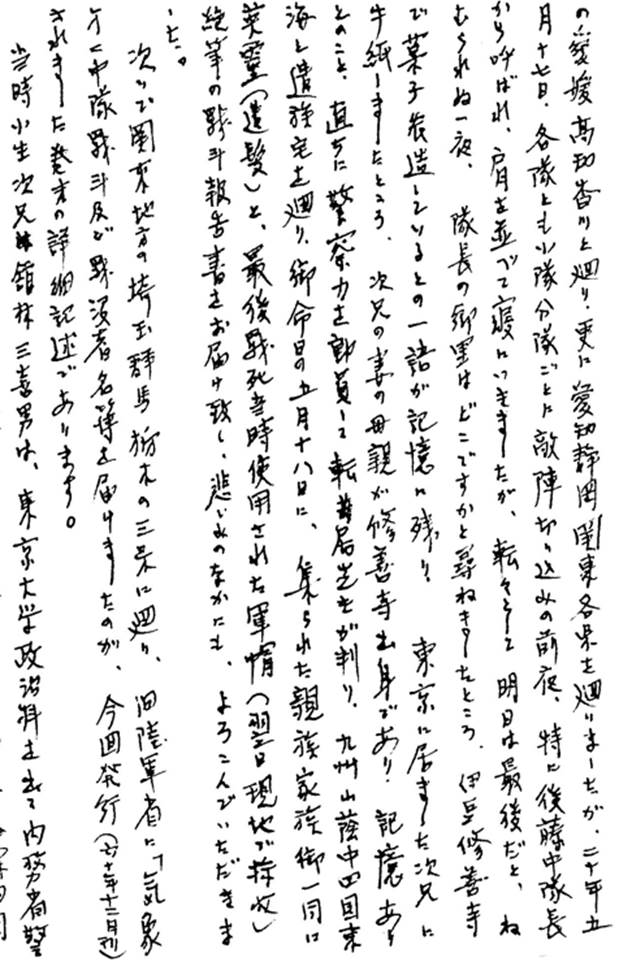 の愛媛高知香川と廻り、更に愛知静岡関東各県を廻りましたが、二十年五
月十七日、各隊とも小隊分隊ごとに敵陣切り込みの前夜、特に後藤中隊長
から呼ばれ、肩を並べて寝につきましたが、転々として明日は最後だと、ね
むられぬ一夜、隊長の郷里はどこですかと尋ねましたところ、伊豆修善寺
で菓子製造しているとの一語が記憶に残り、東京に居ました次兄に
手紙しましたところ、次兄の妻の母親が修善寺出身であり、記憶あり
とのこと、直ちに警察力を動員して転居先が判り、九州山蔭中四国東
海と遺族宅を廻り、御命日の五月十八日に、集られた親族家族御一同に
英霊(遺髪)と、最後戦死当時使用された軍帽(翌日現地で拾収)
絶筆の戦斗報告書をお届け致し、悲しみのなかにも、よろこんでいただきま
した。
次いで関東地方の埼玉群馬栃木の三県に廻り、旧陸軍省に「気象
中隊戦斗及び戦没者名簿を届けましたのが、今回発行(六十年十二月刊)
されました貴方の詳細記述であります。
当時小生次兄舘林三喜男は、東京大学政治科を出て内務省警